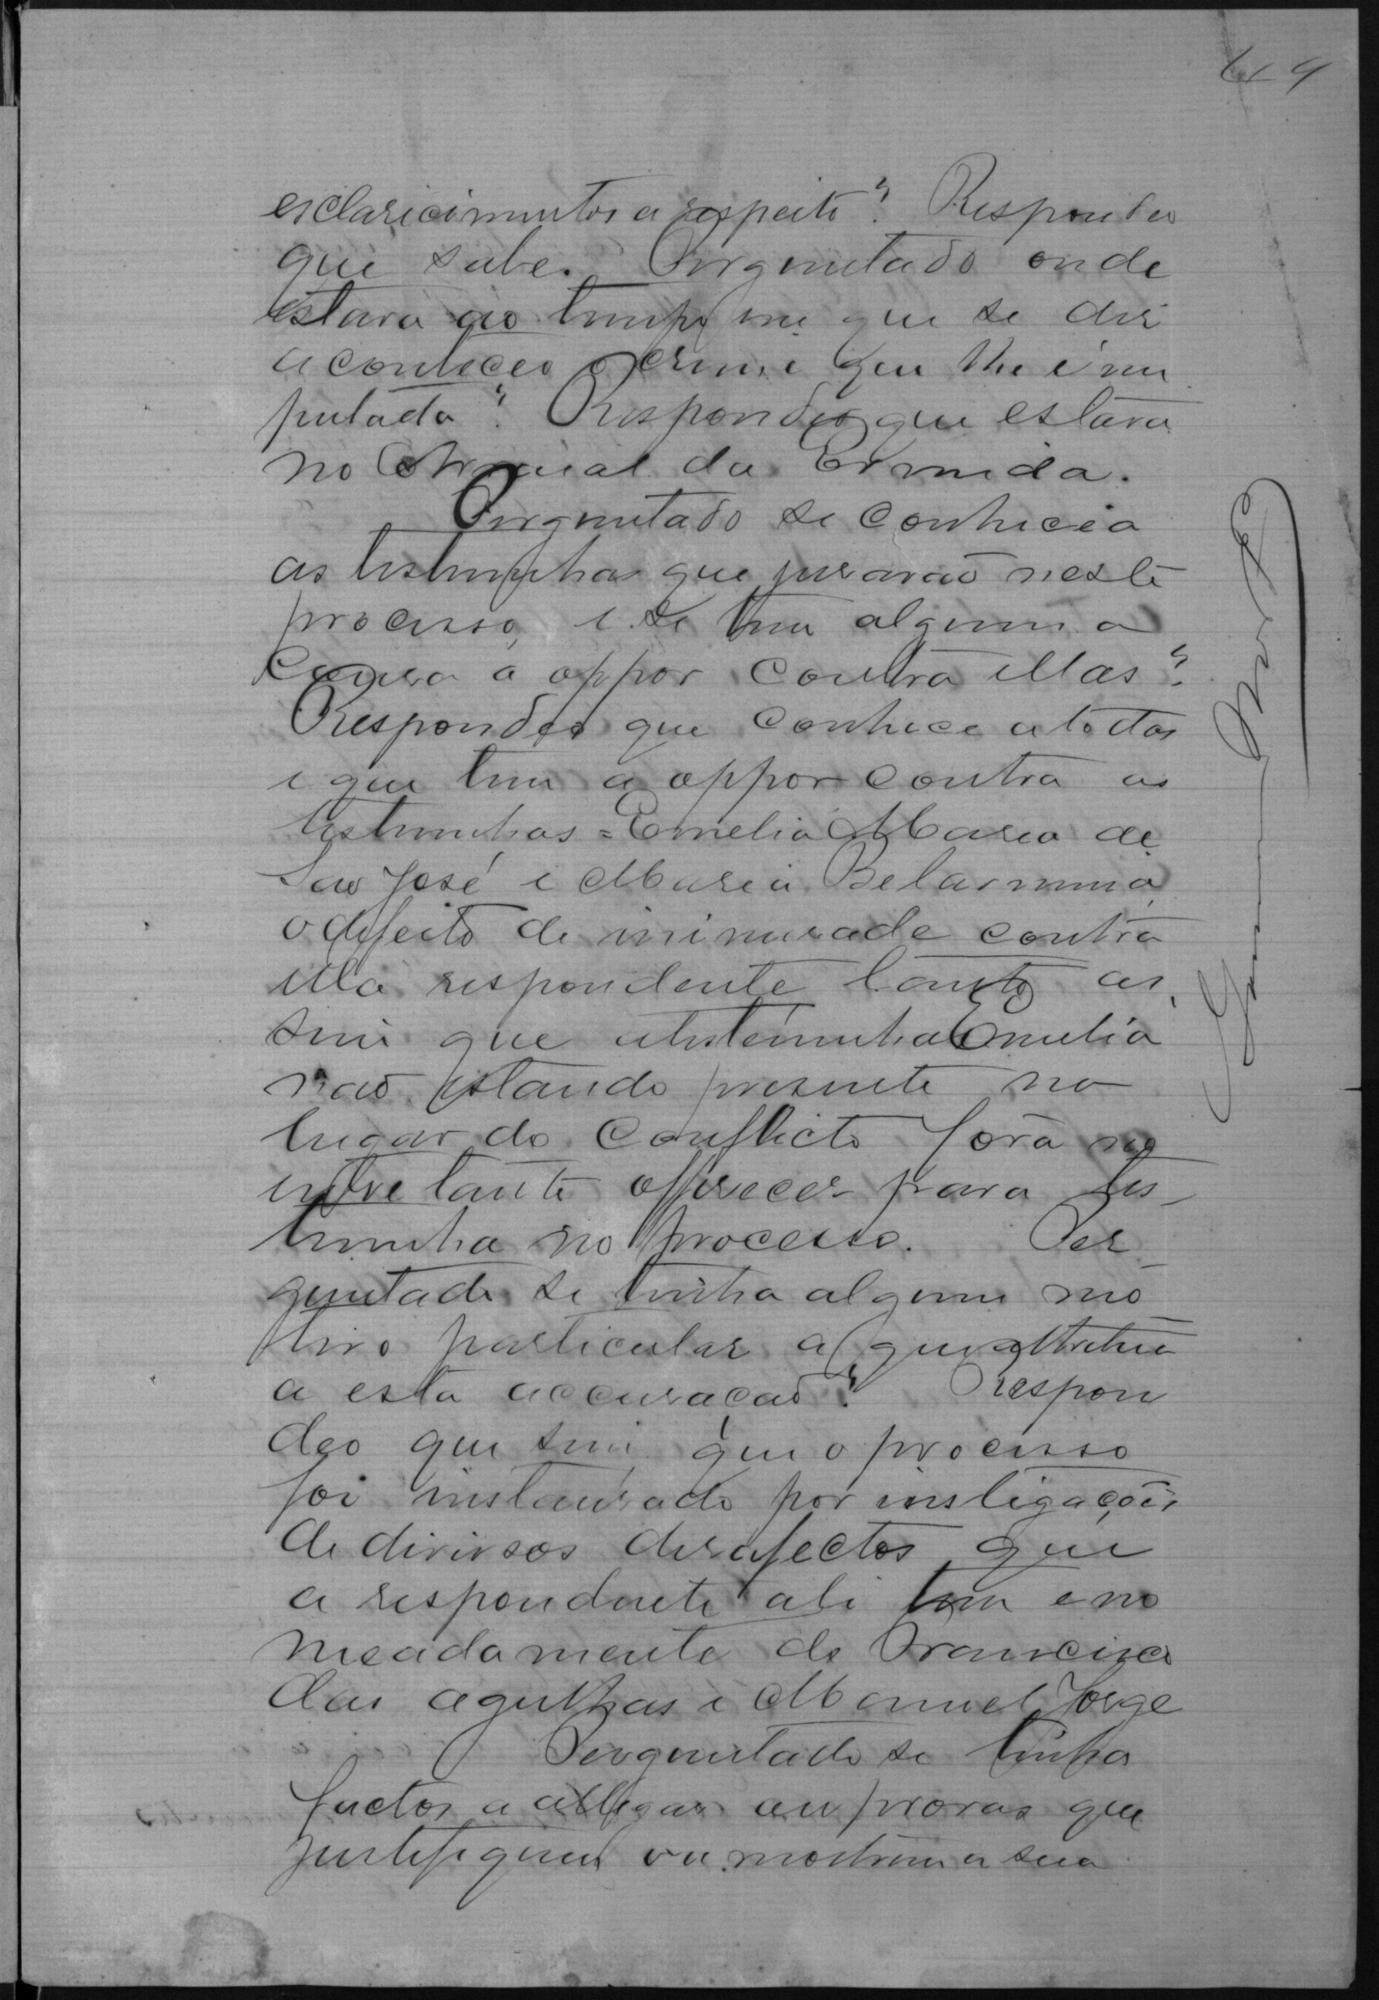 49
esclaricimentos a respeito? Respondeo
que sabe. Perguntado onde
estava ao tempo em que se diz
aconteceo o crime que lhe é im
putado? Respondeo que estava
no Arraial da Ermida.
Perguntado se conhecia
as testimunhas que jurarão neste
processo, e se tem alguma
cousa á oppor contra ellas?
Respondeo que conhece a todas
e que tem a oppor contra as
testimunhas = Emelia Maria de
Sao José e Maria Belarmina
o defeito de inimisade contra
ella respondente tanto as
sim que a testemunha Emelia
não estando presente no
lugar do conflicto fora no
entretanto offerecer para tes
timunha no processo. Per
guntado se tinha algum mo
tivo particular a que attribua
a esta accusacão? Respon
deo que sim, que o processo
foi instaurado por instigações
de diversos desafectos que
a respondente ali tem e no
meadamente de Francisco
das agulhas e Manuel Jorge
Perguntado se tinha
factos a allegar ou provas que
justifiquem ou mostrem a sua